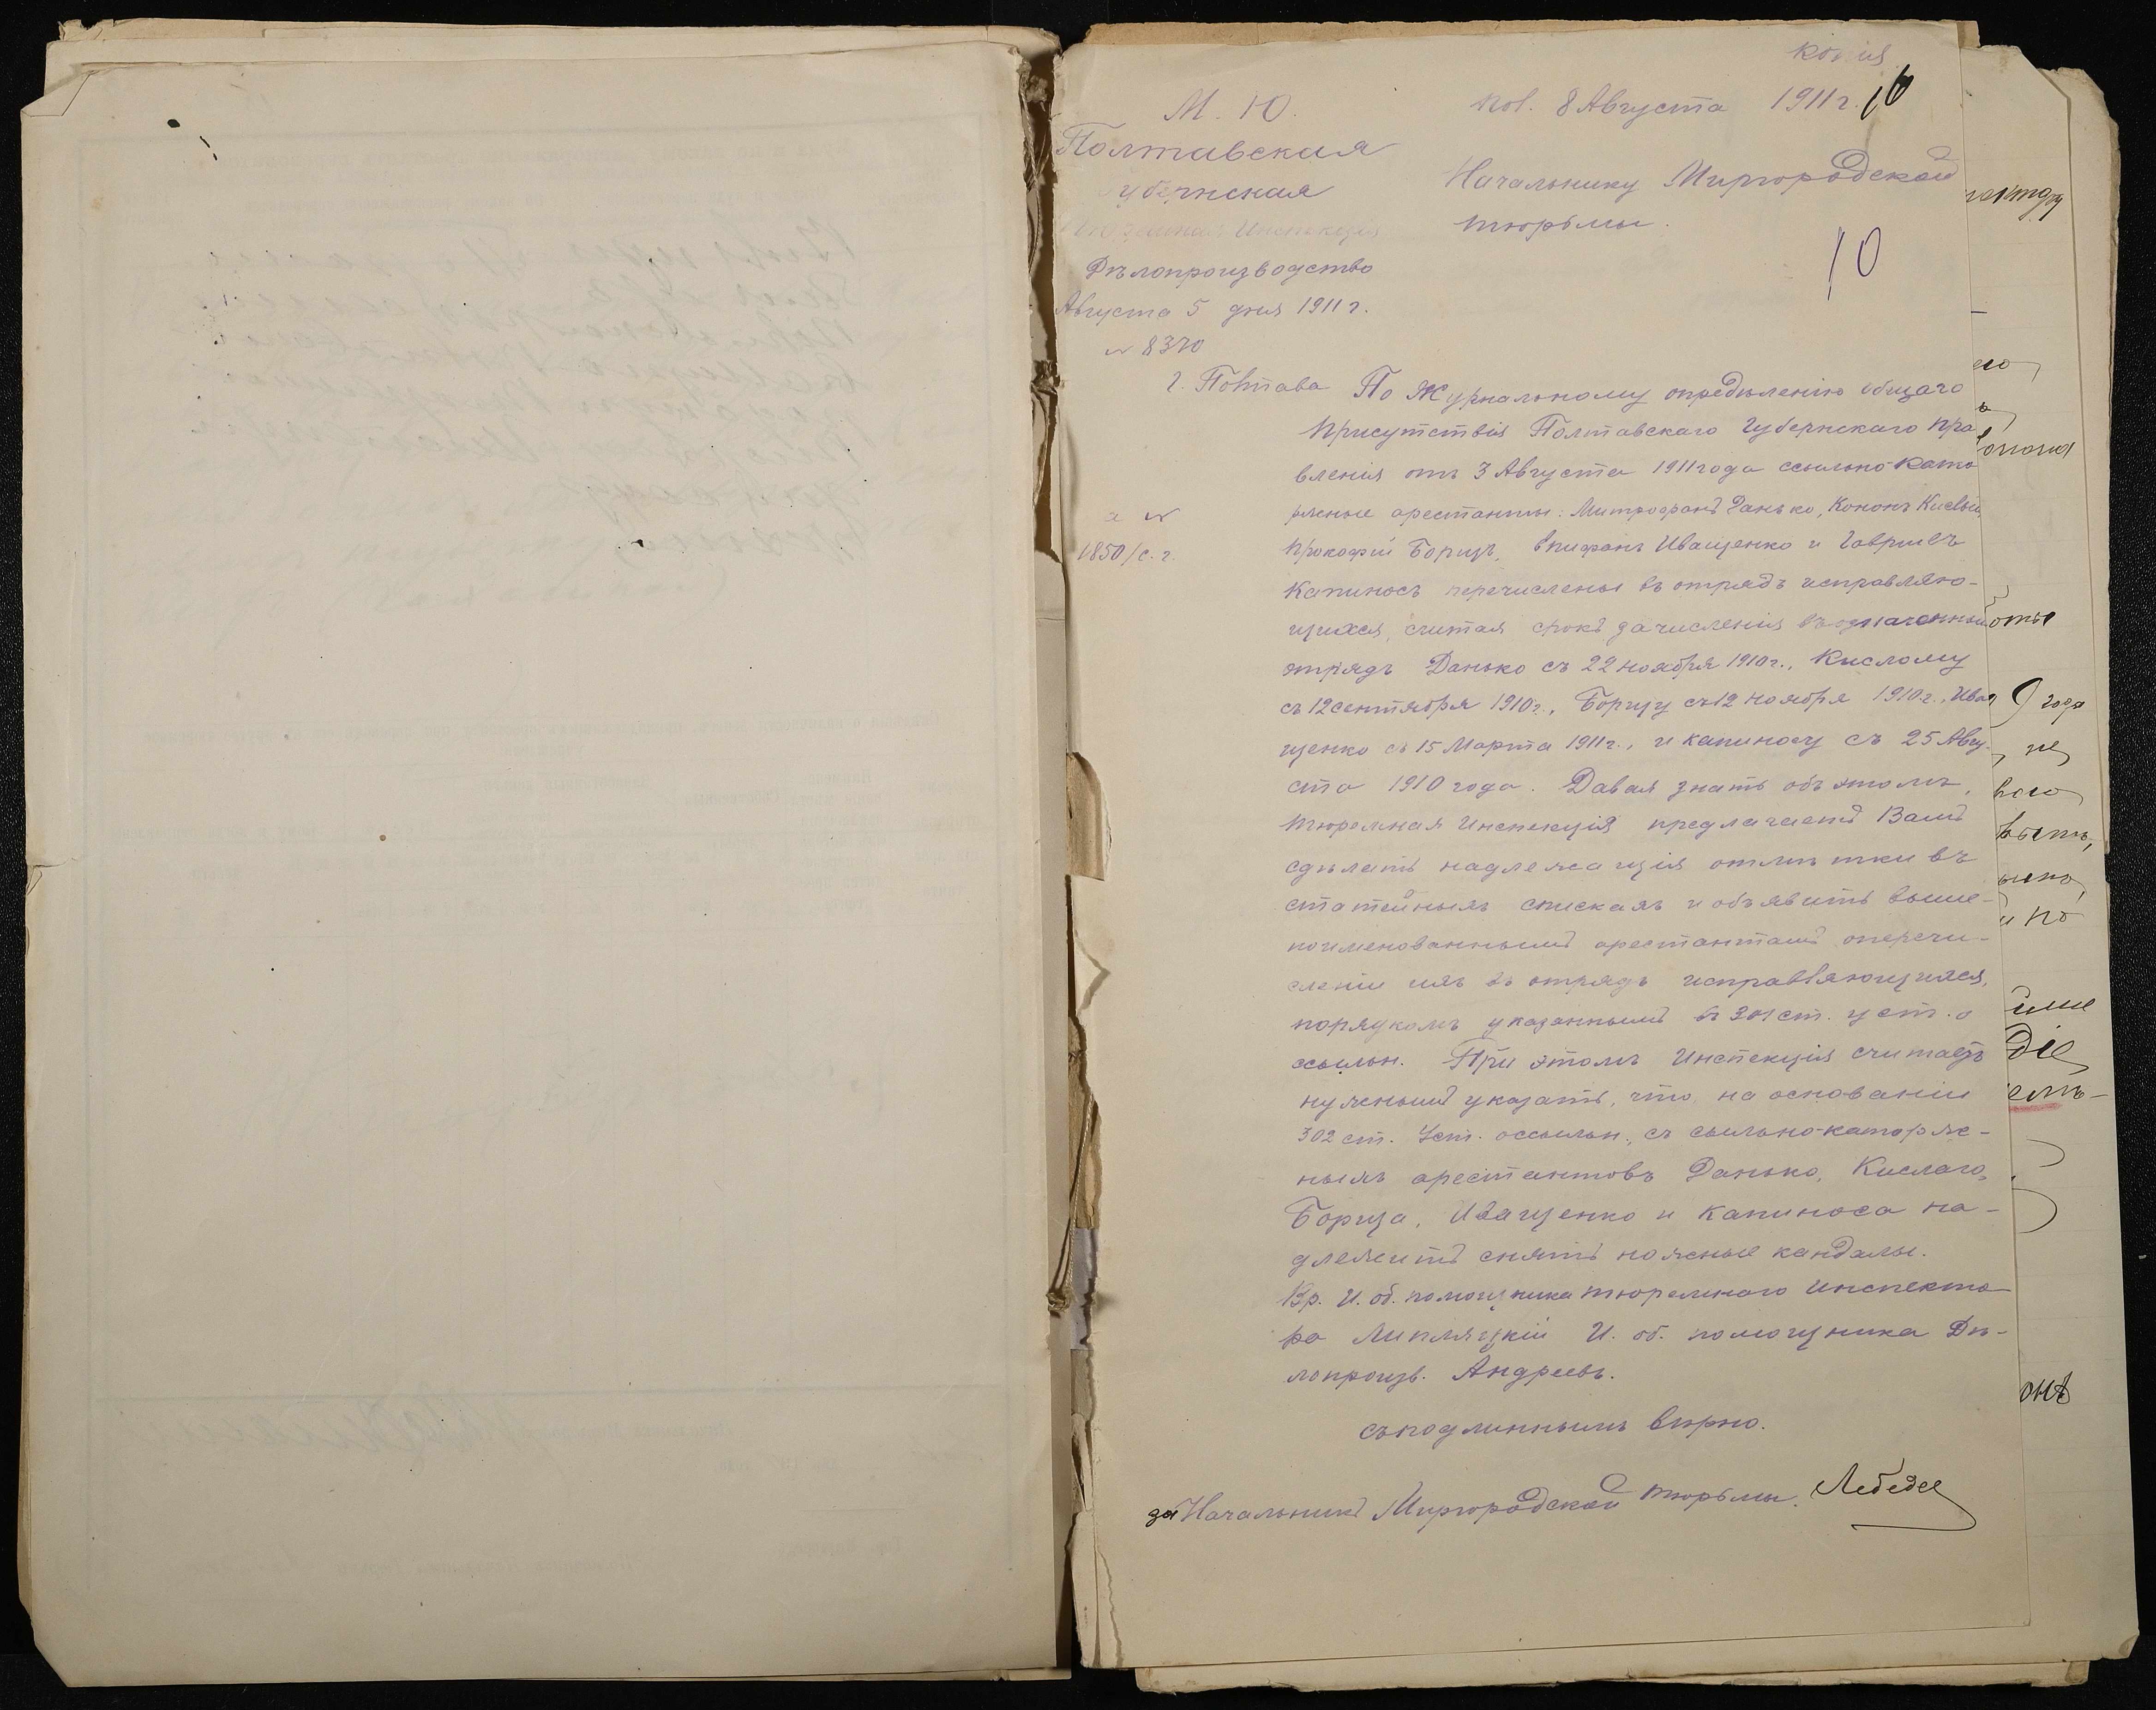 Копія
М. Ю.
Полтавская
Губернская
Тюремная Инспекція
Дѣлопроизводство
Августа 5 дня 1911 г.
№ 8370
г. Полтава
а №
1850/с. г.
пол. 8 Августа 1911 г.
10
Начальнику Миргородской
тюрьмы.
10
По Журнальному опредѣленію общаго
присутствія Полтавскаго Губернскаго Пра
вленія отъ 3 Августа 1911 года ссыльно-като
ржные арестанты: Митрофанъ Данько, Кононъ Кислый,
Прокофій Борщъ, Епифанъ Иващенко и Гавріилъ
Капиносъ перечислены въ отрядъ исправляю-
щихся, считая срокъ зачисленія въ означенный
отрядъ Данько съ 22 ноября 1910 г., Кислому
съ 12 сентября 1910 г., Борщу съ 12 ноября 1910 г., Ива
щенко съ 15 Марта 1911 г., и Капиносу съ 25 Авгу-
ста 1910 года. Давая знать объ этомъ,
тюремная Инспекція предлагаетъ Вамъ
сдѣлать надлежащія отмѣтки въ
статейныхъ спискахъ и объявить выше-
поименованнымъ арестантамъ о перечи-
сленіи ихъ въ отрядъ исправляющихся,
порядкомъ указаннымъ въ 301 ст. уст. о
ссыльн. При этомъ Инспекція считаетъ
нужнымъ указать, что, на основаніи
302 ст. Уст. о ссыльн., съ сыльно-каторж-
ныхъ арестантовъ Данько, Кислаго,
Борща, Иващенко и Капиноса на-
длежитъ снять ножные кандалы.
Вр. И. об. помощника тюремнаго Инспекто
ра Липляцкій И. об. помощника Дѣ-
лопроизв. Андреевъ.
съ подлиннымъ вѣрно.
за Начальника Миргородской тюрьмы. Лебедев